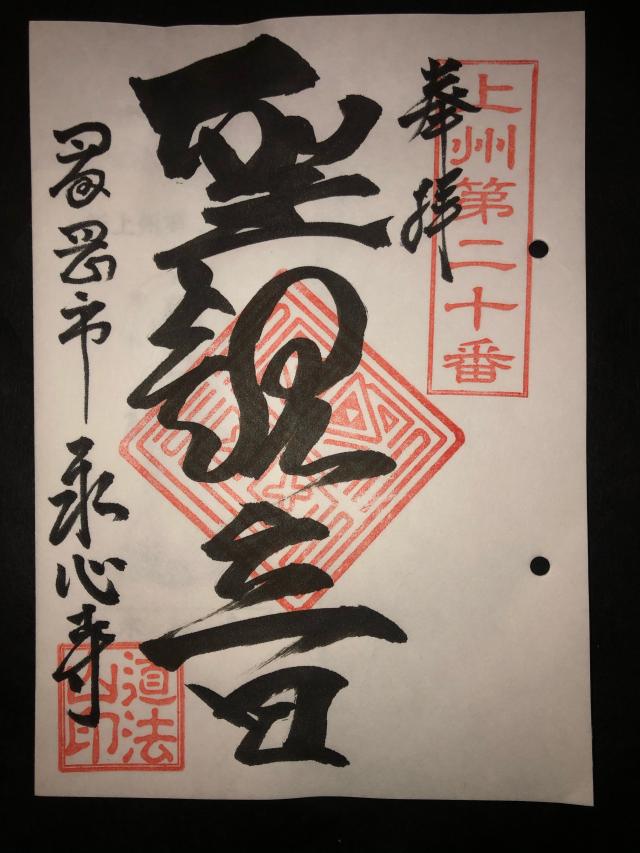 上州第二十番
奉拝
聖観音
冨岡市 永心寺
道法
山印